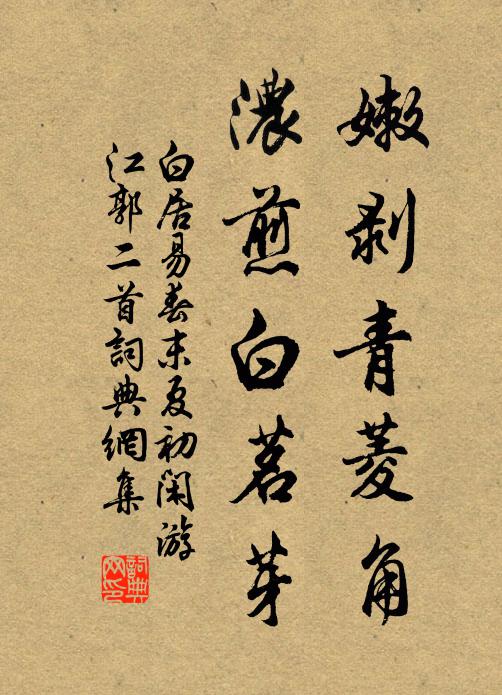 嫩剥青菱角
濃煎白茗芽
白居易春末夏初閑游
江郭二首詞典網集
詞典
网印